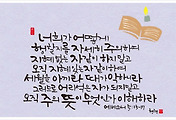 너희가 어떻게
행할지를 자세히 주의하여
지혜없는 자같이 하지말고
오직 지혜있는자같이하여
세월을 아끼라 때가악하니라
그러므로 어리석은자가 되지말고
오직 주의 뜻이무엇인가 이해하라
에베소서 5:15-17